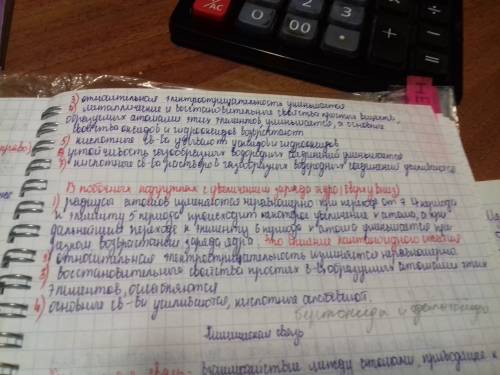 ON/AC
0
00
2
3
×
+
−
=
НЕ
3) относительная электроотрицательность уменьшается
4) металлические и восстановительные свойства простых веществ,
образующих атомами этих элементов, а основные
свойства оксидов и гидроксидов возрастают
5) кислотные св-ва оксидов и гидроксидов
6) устойчивость газообразных водородных соединений уменьшается
7) кислотные св-ва растворов газообразных водородных соединений усиливаются
В побочных подгруппах с увеличением заряда ядра (сверху вниз)
1) радиусы атомов изменяются неравномерно при переходе от 4 периода
к элементу 5 периода происходит увеличение атома, а при
дальнейшем переходе к элементу 6 периода атома уменьшается при
возрастании заряда ядра это влияние лантаноидного сжатия
2) относительная электроотрицательность изменяется неравномерно
3) восстановительные свойства простых в-в образующих атомами этих
элементов, ослабляются
4) основные св-ва усиливаются, кислотные ослабевают.
бертоллиды и дальтониды
Химическая связь
связь - взаимодействие между атомами, приводящее к